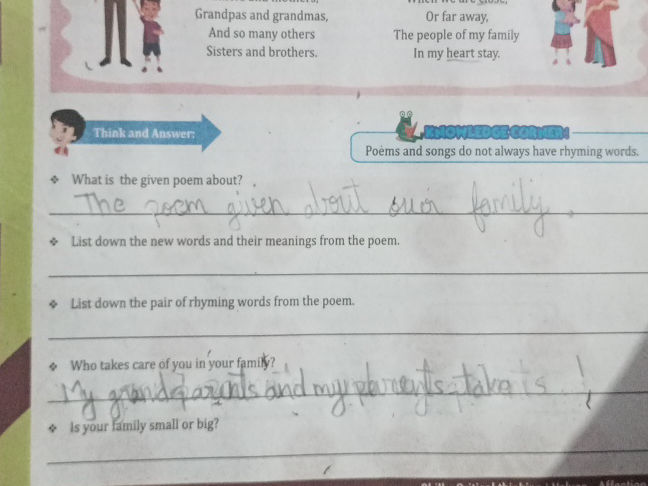 Grandpas and grandmas,
And so many others
Sisters and brothers.
Or far away,
The people of my family
In my heart stay.
Think and Answer:
KNOWLEDGE CORNER
Poems and songs do not always have rhyming words.
❖ What is the given poem about?
The poem given about our family.
❖ List down the new words and their meanings from the poem.
❖ List down the pair of rhyming words from the poem.
❖ Who takes care of you in your family?
My grandparants and my parents take is
❖ Is your family small or big?